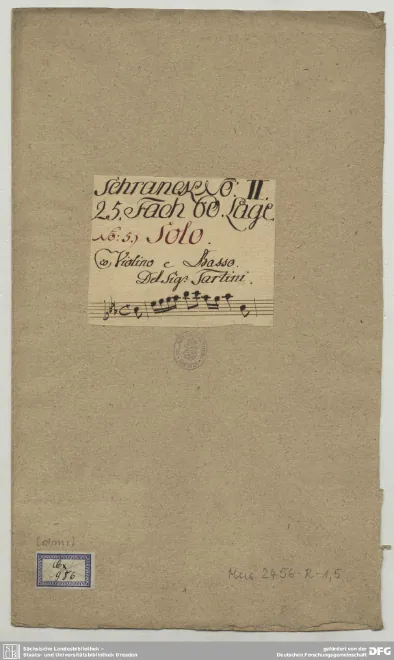 Schranck No: II.
25. Fach 60. Lage.
No: 5.) Solo.
Violino e Basso.
Del Sigr: Tartini.
Cx
986
Mus 2456-R-1,5
Sächsische Landesbibliothek –
Staats- und Universitätsbibliothek Dresden
gefördert von der
Deutschen Forschungsgemeinschaft DFG